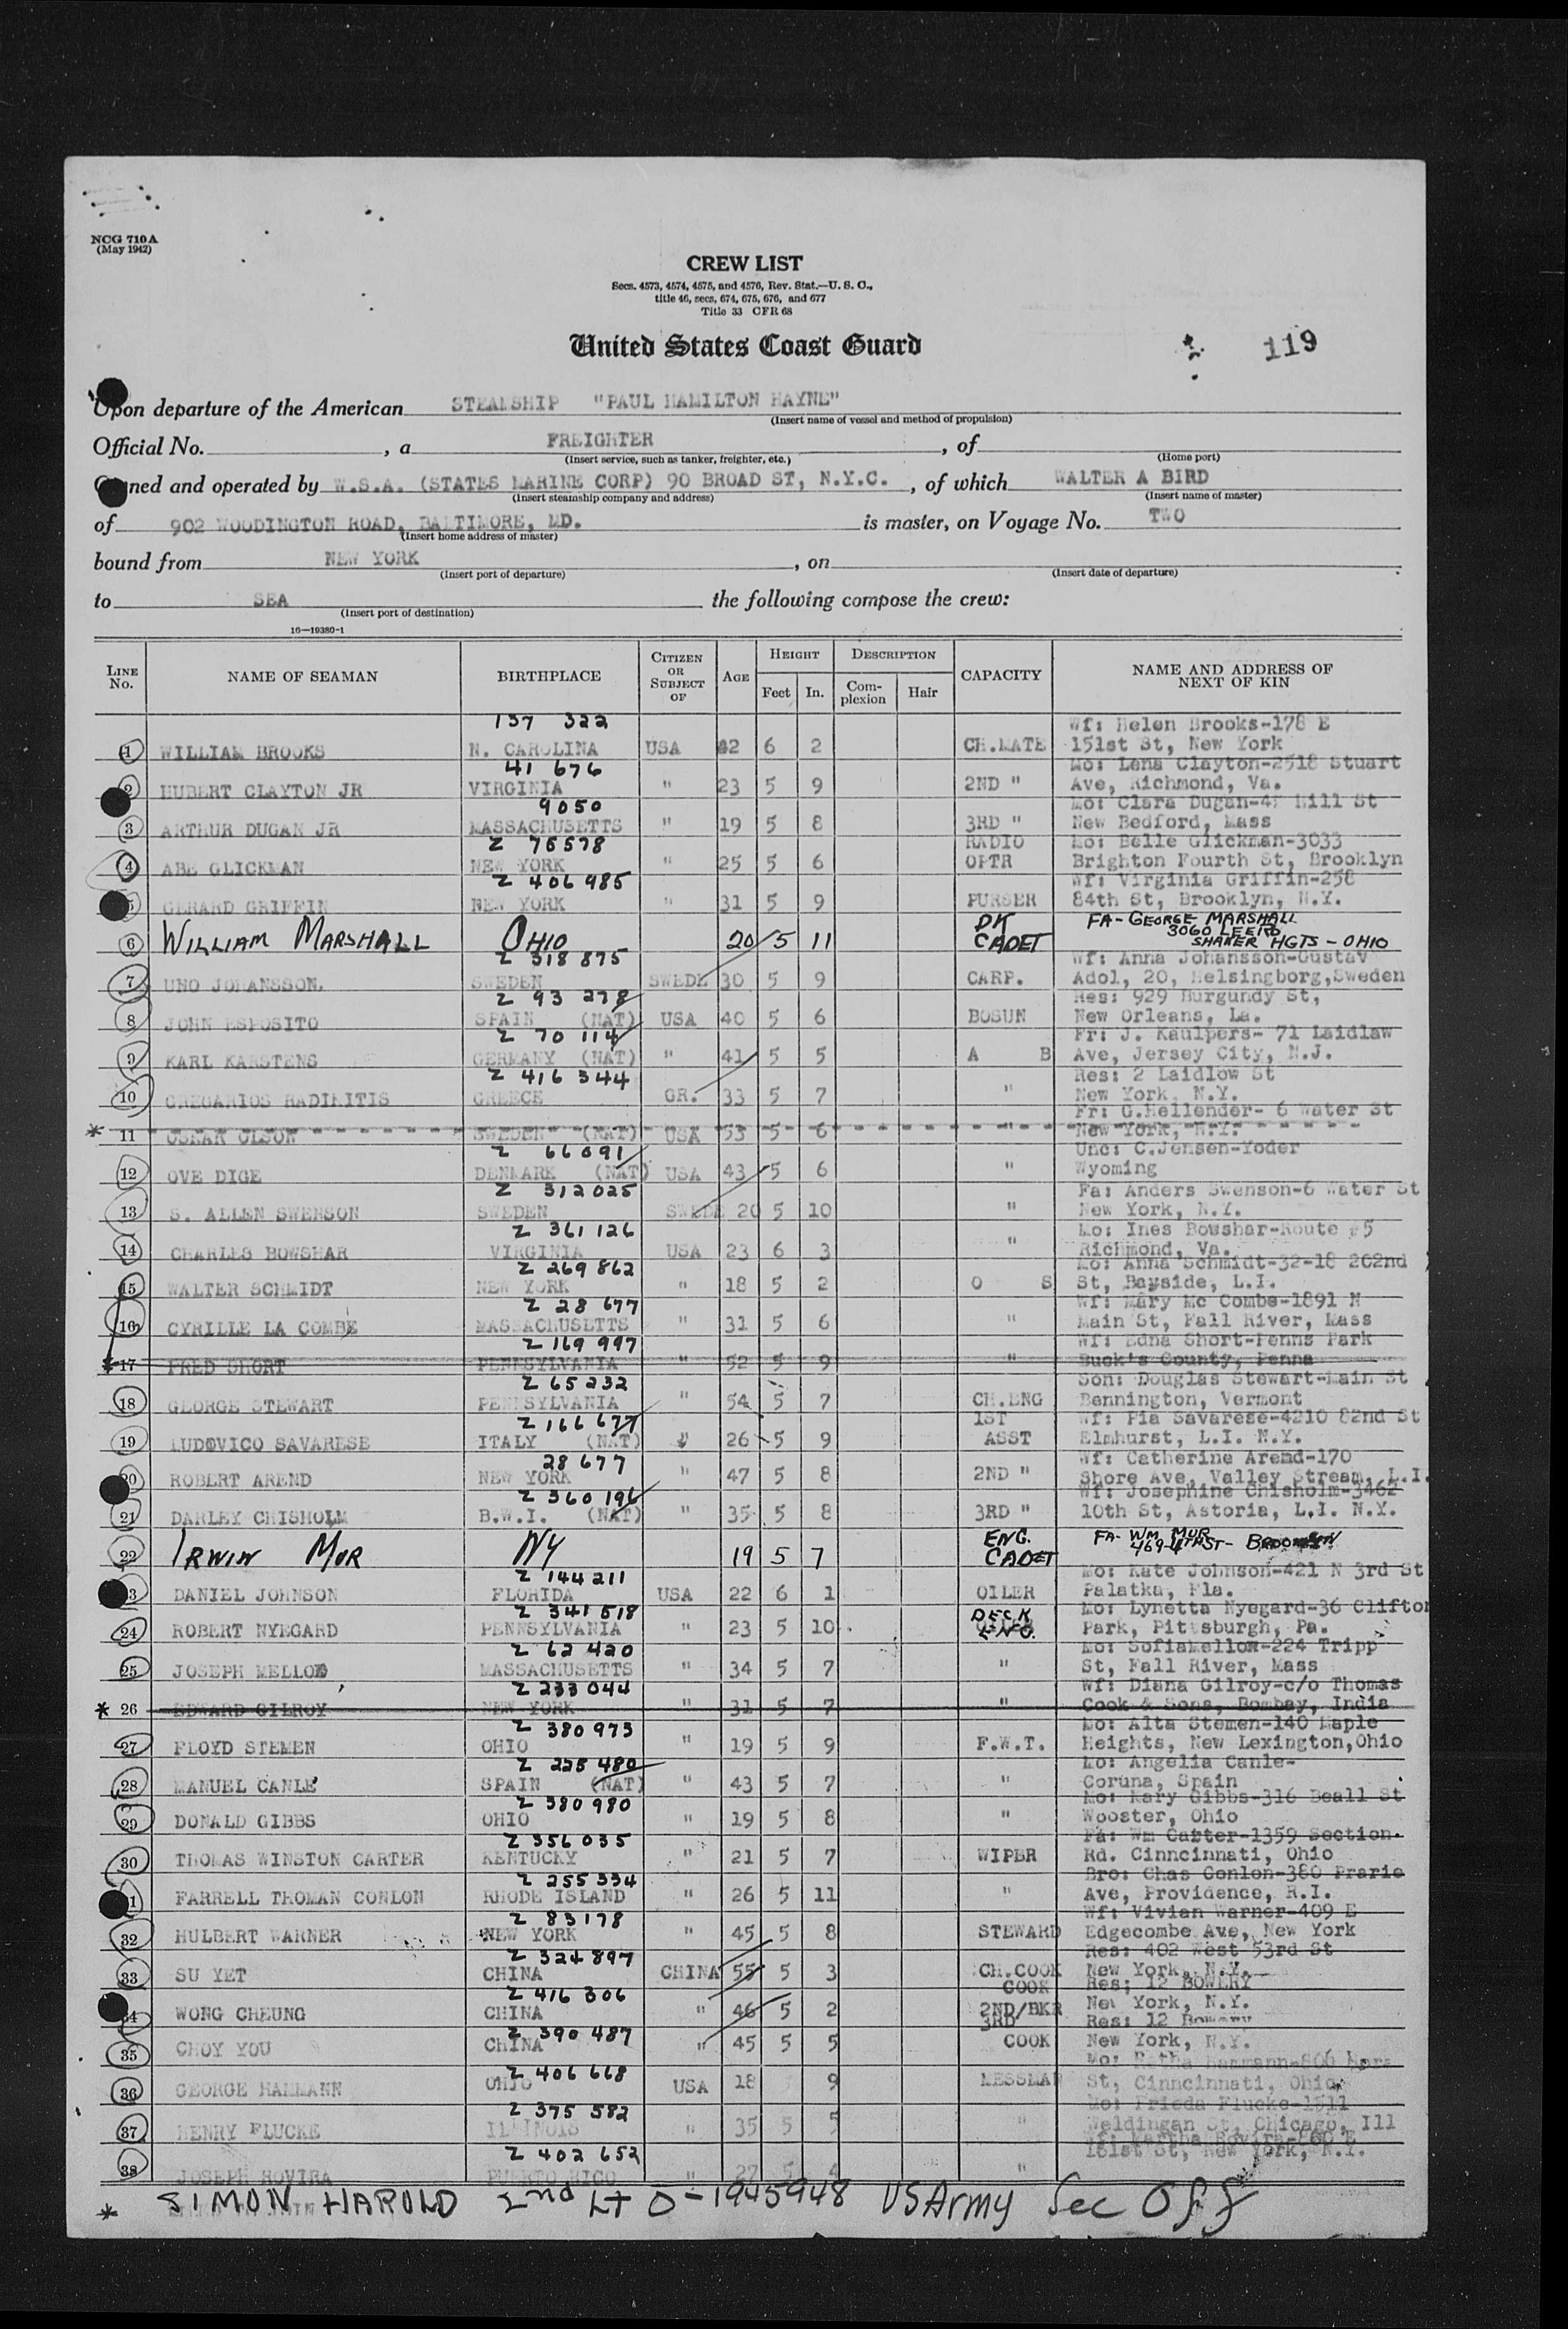 NCG 710A
(May 1942)
CREW LIST
Secs. 4573, 4574, 4575, and 4576, Rev. Stat.—U. S. C.,
title 46, secs, 674, 675, 676, and 677
Title 33 CFR 68
United States Coast Guard
119
Upon departure of the American STEAMSHIP "PAUL HAMILTON HAYNE"
(Insert name of vessel and method of propulsion)
Official No. , a FREIGHTER , of
(Insert service, such as tanker, freighter, etc.) (Home port)
Owned and operated by W.S.A. (STATES MARINE CORP) 90 BROAD ST, N.Y.C. , of which WALTER A BIRD
(Insert steamship company and address) (Insert name of master)
of 902 WOODINGTON ROAD, BALTIMORE, MD. is master, on Voyage No. TWO
(Insert home address of master)
bound from NEW YORK , on
(Insert port of departure) (Insert date of departure)
to SEA the following compose the crew:
(Insert port of destination)
16—19380-1
LINE No. NAME OF SEAMAN BIRTHPLACE CITIZEN OR SUBJECT OF AGE HEIGHT Feet In. DESCRIPTION Complexion Hair CAPACITY NAME AND ADDRESS OF NEXT OF KIN
137 322 Wf: Helen Brooks-178 E
1 WILLIAM BROOKS N. CAROLINA USA 42 6 2 CH.MATE 151st St, New York
41 676 Mo: Lena Clayton-2518 Stuart
2 HUBERT CLAYTON JR VIRGINIA " 23 5 9 2ND " Ave, Richmond, Va.
9050 Mo: Clara Dugan- Hill St
3 ARTHUR DUGAN JR MASSACHUSETTS " 19 5 8 3RD " New Bedford, Mass
Z 75578 RADIO Mo: Belle Glickman-3033
4 ABE GLICKMAN NEW YORK " 25 5 6 OPTR Brighton Fourth St, Brooklyn
Z 406 985 Wf: Virginia Griffin-258
5 GERARD GRIFFIN NEW YORK " 31 5 9 PURSER 84th St, Brooklyn, N.Y.
DK FA- GEORGE MARSHALL
6 WILLIAM MARSHALL OHIO 20 5 11 CADET 3060 LEE RD
SHAKER HGTS - OHIO
Z 318 875 Wf: Anna Johansson-Gustav
7 UNO JOHANSSON. SWEDEN SWEDE 30 5 9 CARP. Adol, 20, Helsingborg,Sweden
Z 93 278 Res: 929 Burgundy St,
8 JOHN ESPOSITO SPAIN (NAT) USA 40 5 6 BOSUN New Orleans, La.
Z 70 114 Fr: J. Kaulpers- 71 Laidlaw
9 KARL KARSTENS GERMANY (NAT) " 41 5 5 A B Ave, Jersey City, N.J.
Z 416 344 Res: 2 Laidlow St
10 GREGARIOS RADIKITIS GREECE GR. 33 5 7 " New York, N.Y.
Fr: G.Hellender- 6 Water St
* 11 OSKAR OLSON SWEDEN (NAT) USA 53 5 6 " New York, N.Y.
Z 66091 Unc: C.Jensen-Yoder
12 OVE DIGE DENMARK (NAT) USA 43 5 6 " Wyoming
Z 312025 Fa: Anders Swenson-6 Water St
13 S. ALLEN SWENSON SWEDEN SWEDE 20 5 10 " New York, N.Y.
Z 361 126 Mo: Ines Bowshar-Route #5
14 CHARLES BOWSHAR VIRGINIA USA 23 6 3 " Richmond, Va.
Z 269 862 Mo: Anna Schmidt-32-18 202nd
15 WALTER SCHMIDT NEW YORK " 18 5 2 O S St, Bayside, L.I.
Z 28 677 Wf: Mary Mc Combe-1891 N
16 CYRILLE LA COMBE MASSACHUSETTS " 31 5 6 " Main St, Fall River, Mass
Z 169 997 Wf: Edna Short-Penns Park
* 17 FRED SHORT PENNSYLVANIA " 52 5 9 " Buck's County, Penna
Z 65232 Son: Douglas Stewart-Main St
18 GEORGE STEWART PENNSYLVANIA " 54 5 7 CH.ENG Bennington, Vermont
Z 166 677 1ST Wf: Pia Savarese-4210 82nd St
19 LUDOVICO SAVARESE ITALY (NAT) " 26 5 9 ASST Elmhurst, L.I. N.Y.
28 677 Wf: Catherine Arend-170
20 ROBERT AREND NEW YORK " 47 5 8 2ND " Shore Ave, Valley Stream, L.I.
Z 360 196 Wf: Josephine Chisholm-3462
21 DARLEY CHISHOLM B.W.I. (NAT) " 35 5 8 3RD " 10th St, Astoria, L.I. N.Y.
ENG. FA- WM MUR
22 IRWIN MUR NY 19 5 7 CADET
Z 144211 Mo: Kate Johnson-421 N 3rd St
23 DANIEL JOHNSON FLORIDA USA 22 6 1 OILER Palatka, Fla.
Z 341 518 DECK Mo: Lynetta Nyegard-36 Clifton
24 ROBERT NYEGARD PENNSYLVANIA " 23 5 10 ENG. Park, Pittsburgh, Pa.
Z 62 420 Mo: SofiaMellow-224 Tripp
25 JOSEPH MELLO MASSACHUSETTS " 34 5 7 " St, Fall River, Mass
Z 233 044 Wf: Diana Gilroy-c/o Thomas
* 26 EDWARD GILROY NEW YORK " 31 5 7 " Cook & Sons, Bombay, India
Z 380 973 Mo: Alta Stemen-140 Maple
27 FLOYD STEMEN OHIO " 19 5 9 F.W.T. Heights, New Lexington,Ohio
Z 225 480 Mo: Angelia Canle-
28 MANUEL CANLE SPAIN (NAT) " 43 5 7 " Coruna, Spain
Z 380 980 Mo: Mary Gibbs-316 Beall St
29 DONALD GIBBS OHIO " 19 5 8 " Wooster, Ohio
Z 356 035 Fa: Wm Carter-1359 Section
30 THOMAS WINSTON CARTER KENTUCKY " 21 5 7 WIPER Rd. Cinncinnati, Ohio
Z 255 334 Bro: Chas Conlon-380 Prarie
31 FARRELL THOMAN CONLON RHODE ISLAND " 26 5 11 " Ave, Providence, R.I.
Z 83178 Wf: Vivian Warner-409 E
32 HULBERT WARNER NEW YORK " 45 5 8 STEWARD Edgecombe Ave, New York
Z 324 897 Res: 402 West 53rd St
33 SU YET CHINA CHINA 55 5 3 CH.COOK New York, N.Y.
Z 416 306 COOK Res; 12 BOWERY
34 WONG CHEUNG CHINA " 46 5 2 2ND/BKR New York, N.Y.
Z 390 487 3RD Res: 12 Bowery
35 CHOY YOU CHINA " 45 5 5 COOK New York, N.Y.
Z 406 668 Mo:
36 GEORGE HAMMANN OHIO USA 18 9 MESSMAN St, Cinncinnati, Ohio
Z 375 582 Mo: Frieda Flucke-1511
37 HENRY FLUCKE ILLINOIS " 35 5 5 " Weldingan St, Chicago, Ill
Z 402 652 Wf: Martha Rovira-
38 JOSEPH ROVIRA PUERTO RICO " 27 5 4 " 161st St, New York, N.Y.
* SIMON HAROLD 2nd Lt O-1945948 US Army Sec Off